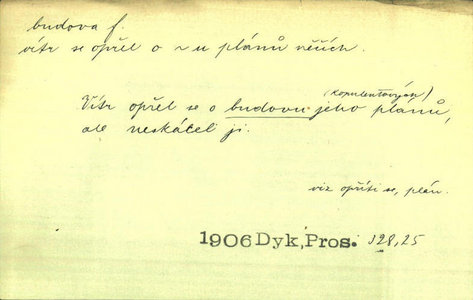 budova f.
vítr se opřel o ~ u plánů něčích.
(Konsulentových)
Vítr opřel se o budovu jeho plánů,
ale neskácel ji.
viz opříti se, plán.
1906 Dyk, Pros. 128,25